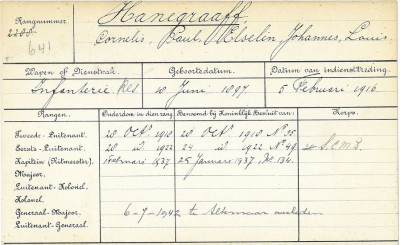 Rangnummer.
Hanegraaff,
2205
641
Cornelis, Paul, Elselin, Johannes, Louis
Wapen of Dienstvak. Geboortedatum. Datum van indiensttreding.
Infanterie. Res 10 Juni 1897 5 Februari 1916
Rangen. Ouderdom in dien rang. Benoemd bij Koninklijk Besluit van: Korps.
Tweede-Luitenant. 20 Oct 1910 20 Oct 1910 No 35.
Eerste-Luitenant. 1922 24 1922 No 49.
Kapitein (Ritmeester) 1 Februari 1937 25 Januari 1937, No. 134.
Majoor.
Luitenant-Kolonel.
Kolonel.
Generaal-Majoor. 6-7-1942 te Alkmaar overleden
Luitenant-Generaal.